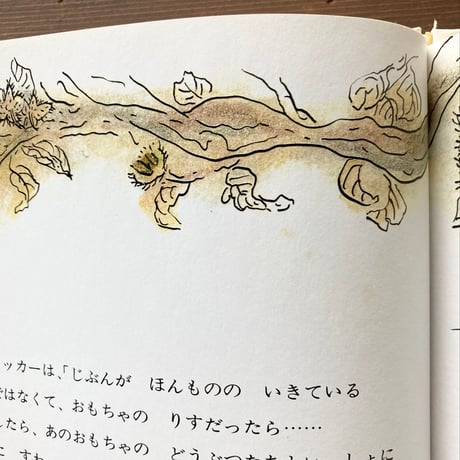 ッカーは、「じぶんが　ほんものの　いきている
ではなくて、おもちゃの　りすだったら……
したら、あのおもちゃの　どうぶつたち